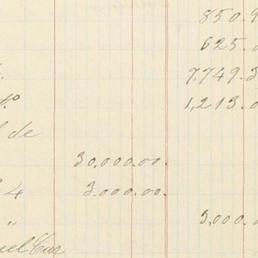 850.9
625.
7,749.3
1,213.0
de
30,000.00.
4 3,000.00.
" 3,000.